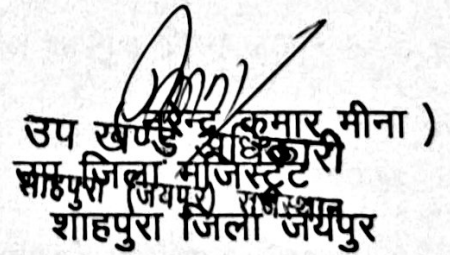 उप खण्ड अधिकारी
कुमार मीना )
उप जिला मजिस्ट्रेट
शाहपुरा (जयपुर) राजस्थान
शाहपुरा जिला जयपुर